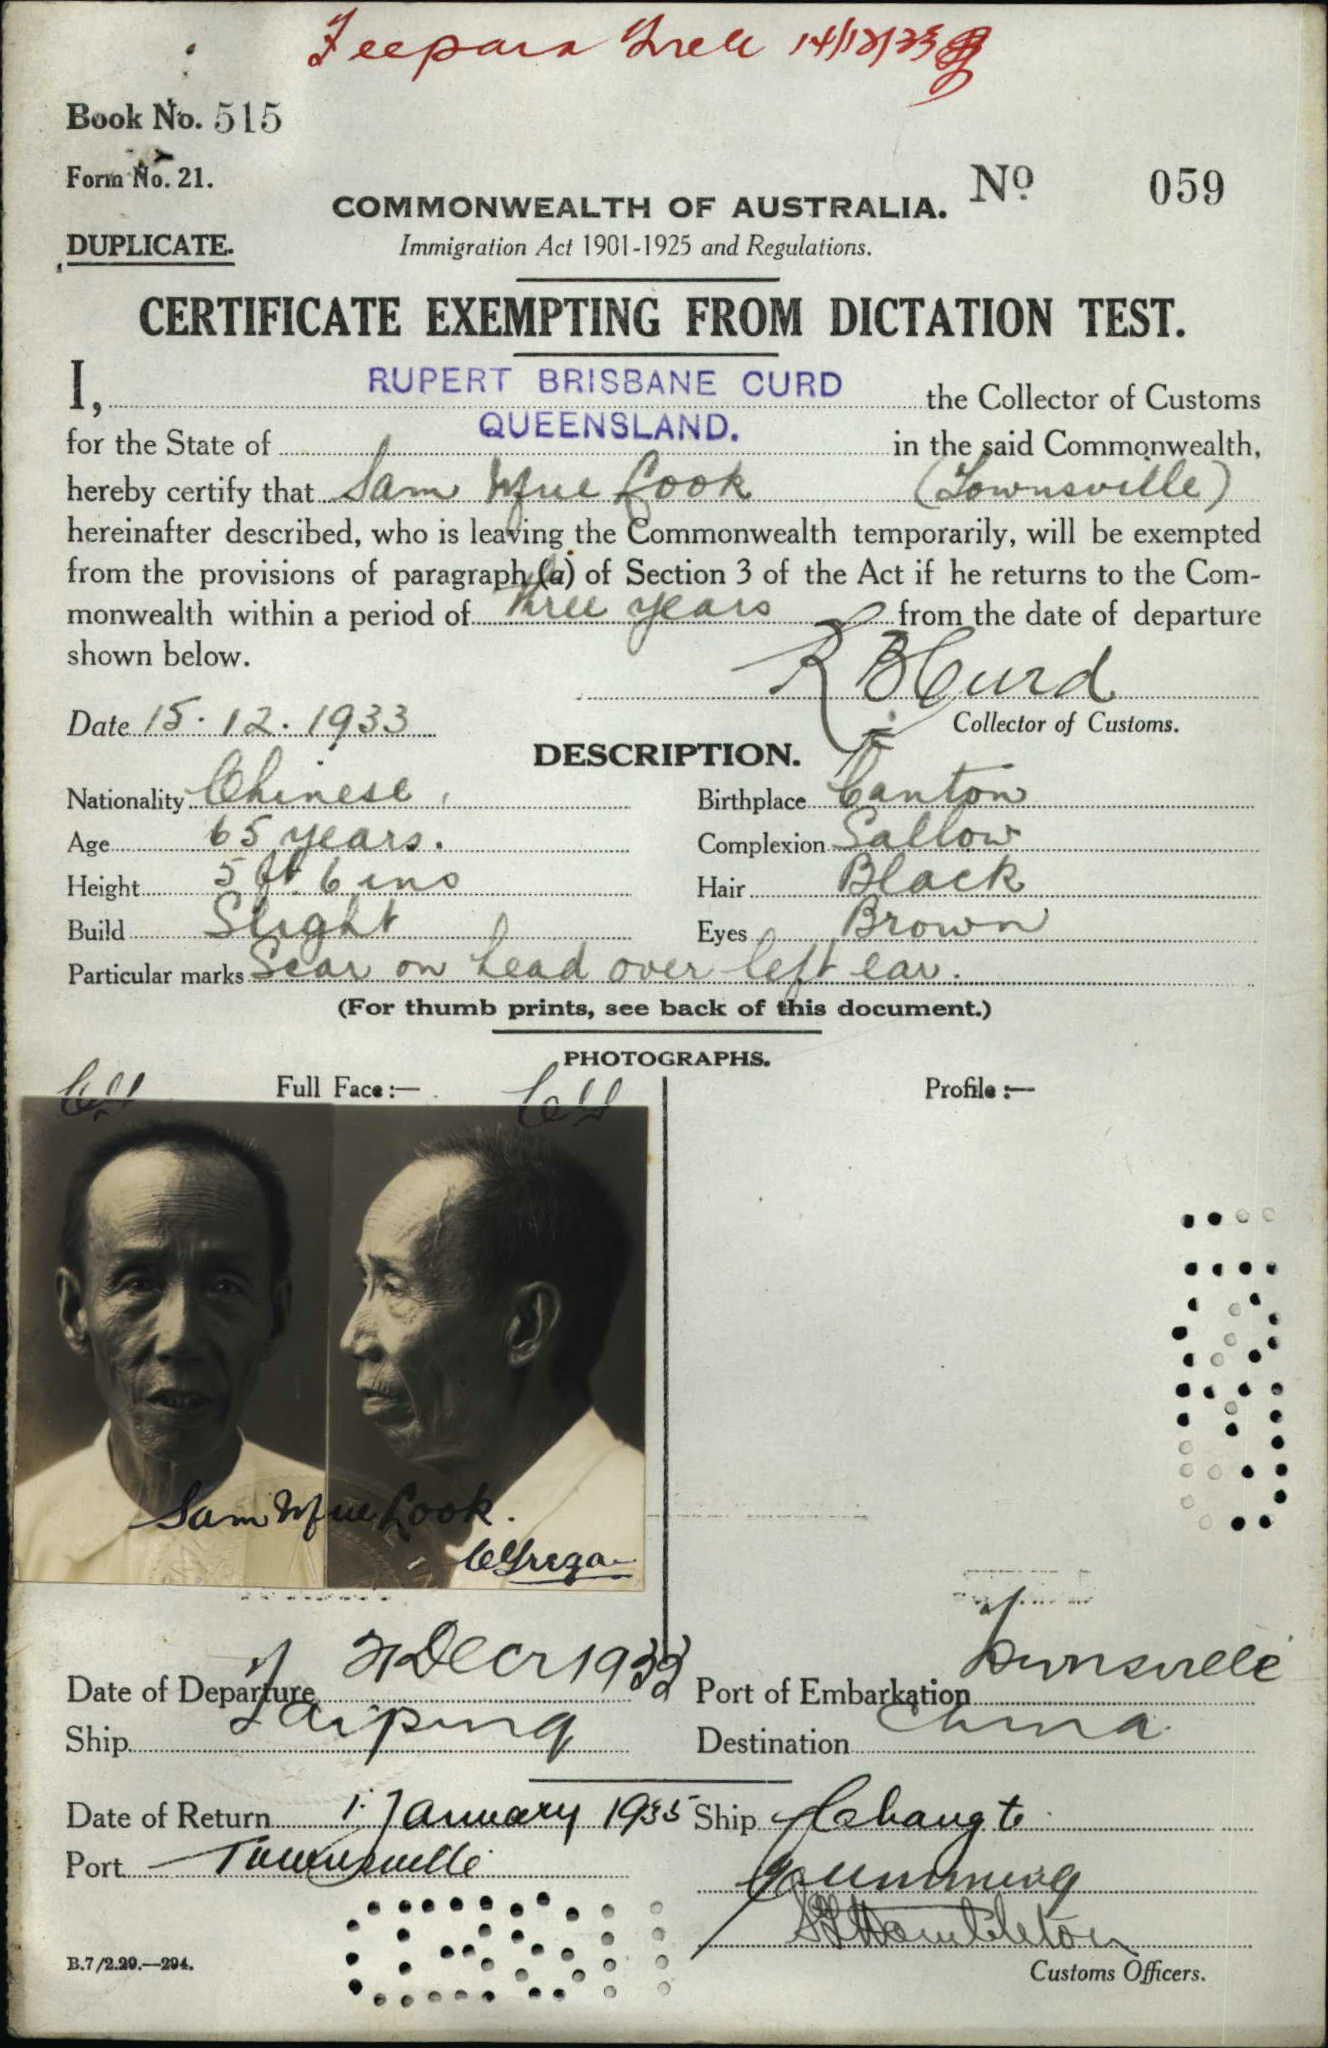 Fee paid 14/12/33
Book No. 515
Form No. 21.
No 059
COMMONWEALTH OF AUSTRALIA.
DUPLICATE.
Immigration Act 1901-1925 and Regulations.
CERTIFICATE EXEMPTING FROM DICTATION TEST.
I, RUPERT BRISBANE CURD the Collector of Customs
for the State of QUEENSLAND. in the said Commonwealth,
hereby certify that Sam Mue Look (Townsville)
hereinafter described, who is leaving the Commonwealth temporarily, will be exempted
from the provisions of paragraph (a) of Section 3 of the Act if he returns to the Com-
monwealth within a period of three years from the date of departure
shown below.
R B Curd
Date 15.12.1933
Collector of Customs.
DESCRIPTION.
Nationality Chinese Birthplace Canton
Age 65 years. Complexion Sallow
Height 5 ft 6 ins Hair Black
Build Slight Eyes Brown
Particular marks Scar on head over left ear.
(For thumb prints, see back of this document.)
PHOTOGRAPHS.
Full Face:— Profile:—
Sam Mue Look.
Date of Departure 21 Decr 1933 Port of Embarkation Townsville
Ship Taiping Destination China
Date of Return 1. January 1935 Ship Changte
Port Townsville
Cumming
Hambleton
B.7/2.29.—294.
Customs Officers.